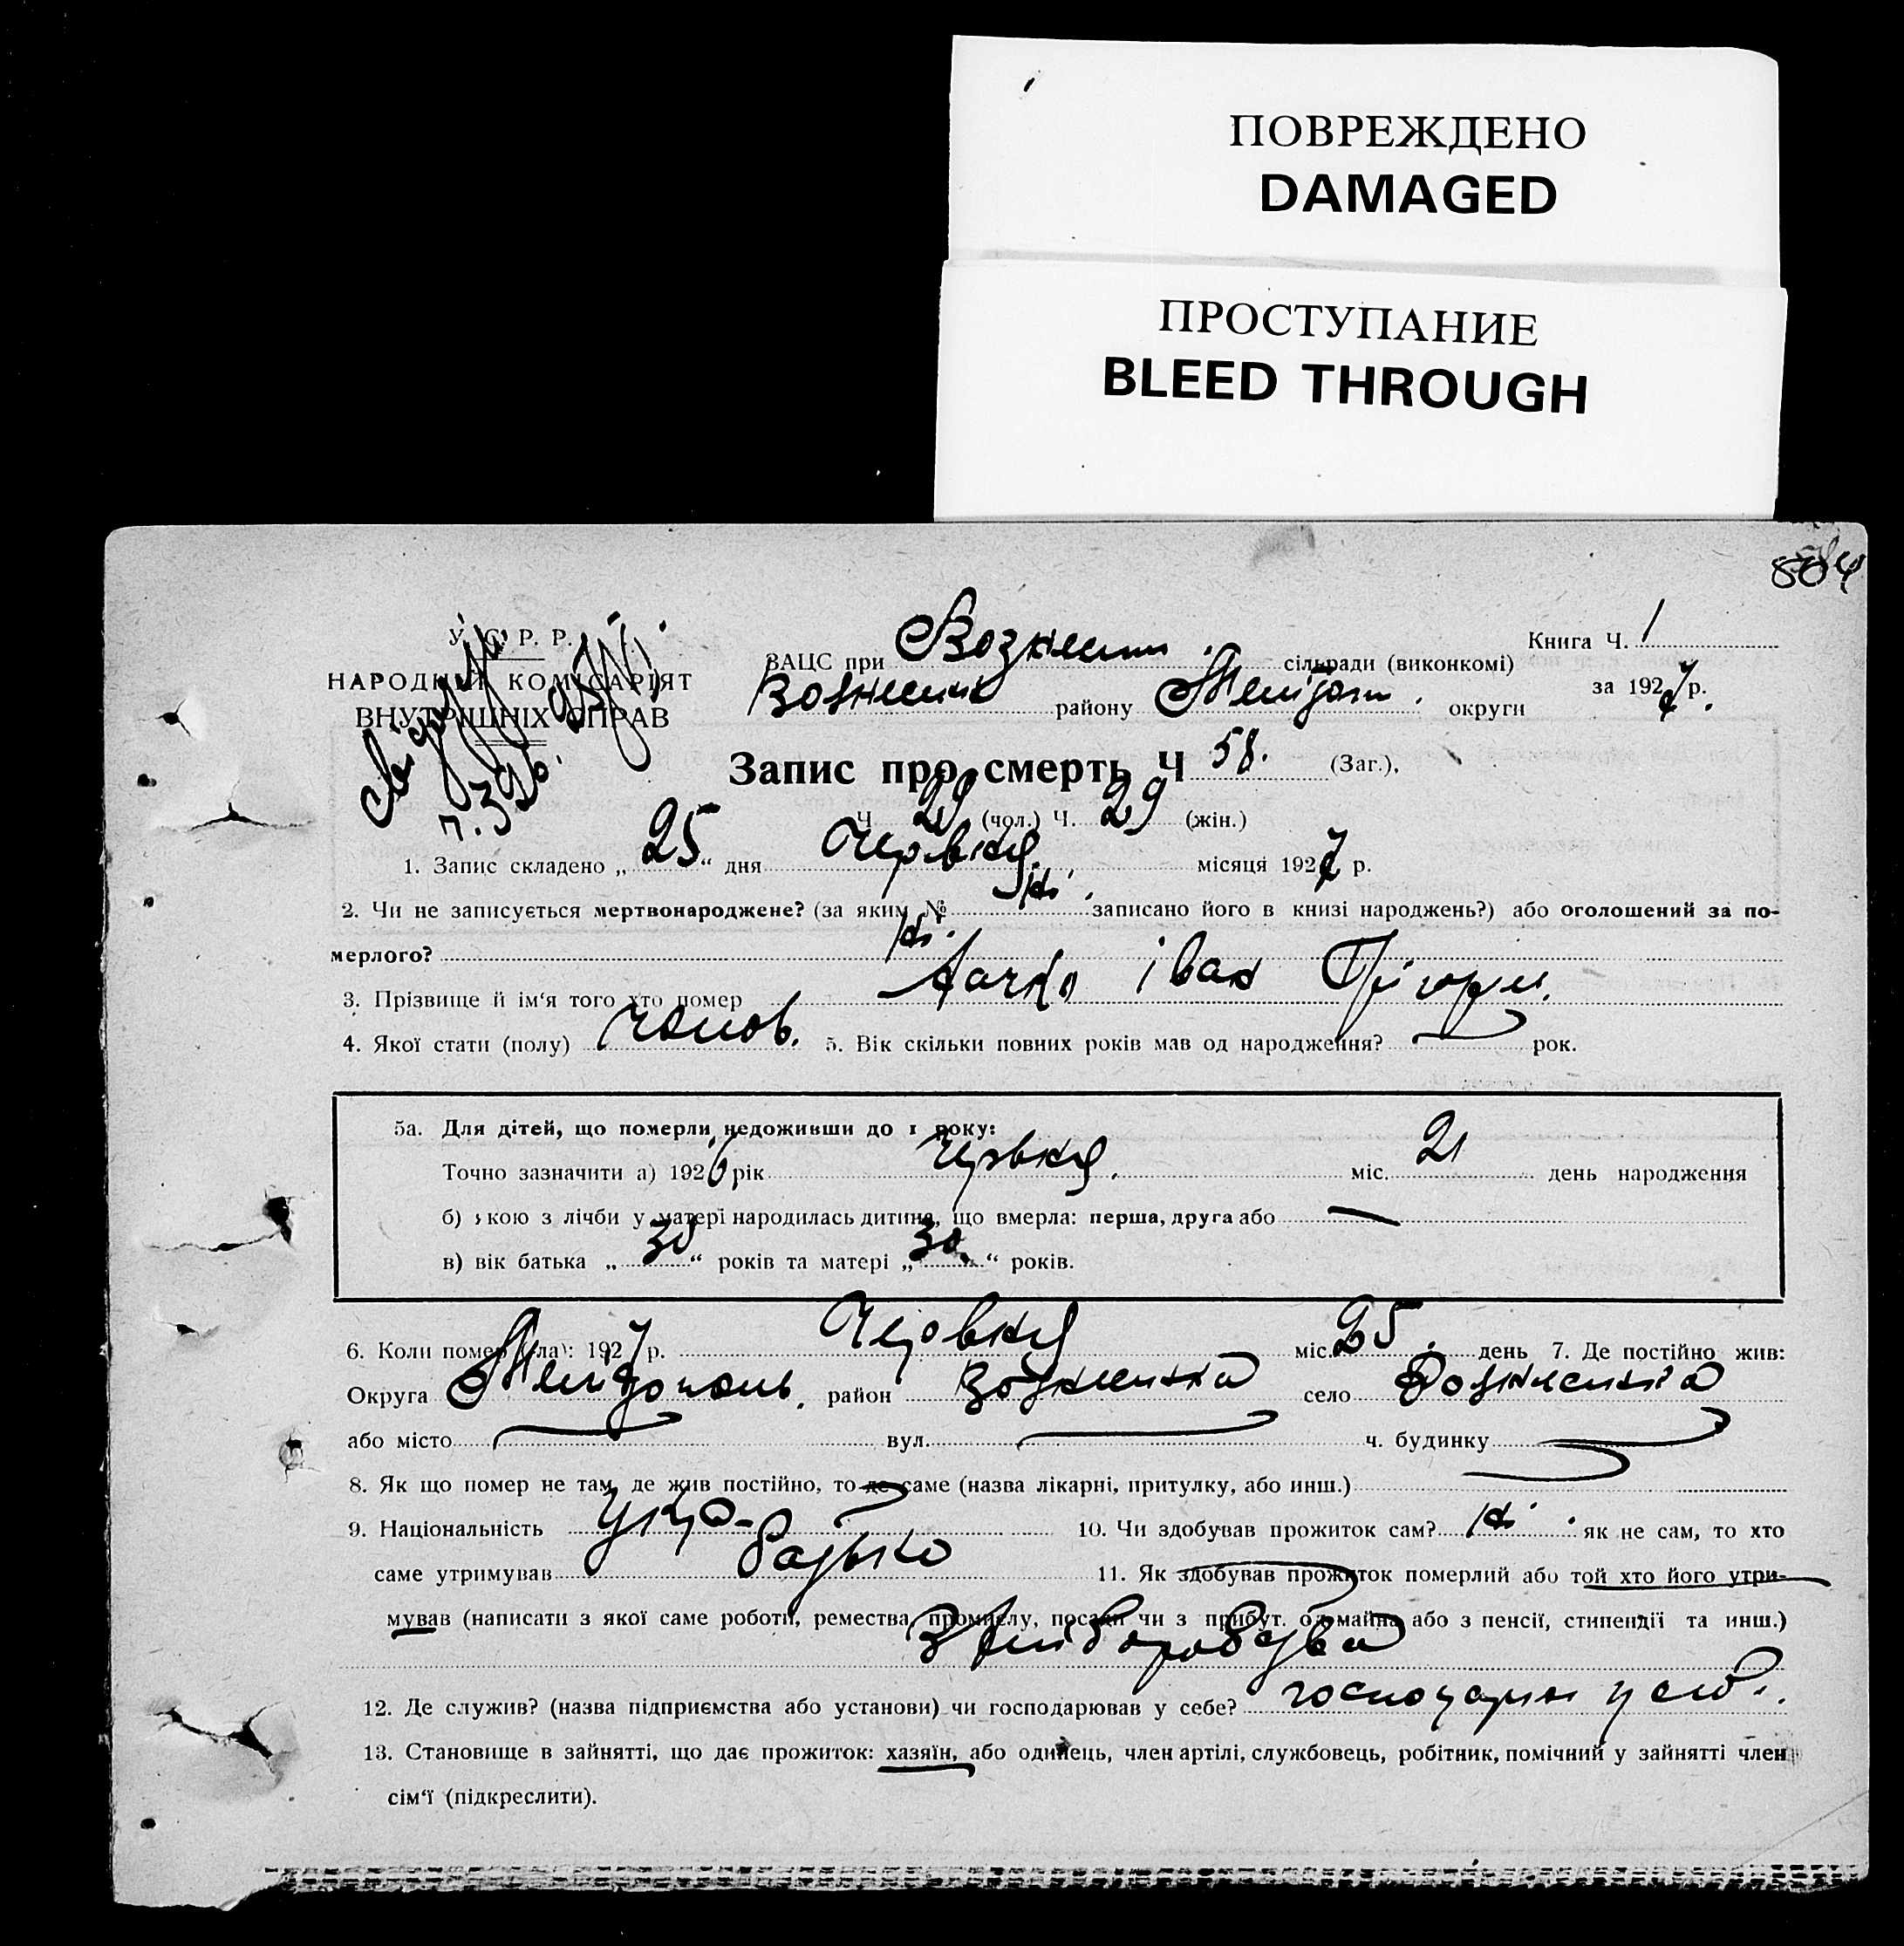 ПОВРЕЖДЕНО
DAMAGED
ПРОСТУПАНИЕ
BLEED THROUGH
У. С. Р. Р.
НАРОДНИЙ КОМІСАРІЯТ
ВНУТРІШНІХ СПРАВ
ЗАЦС при Вознесен. сільради (виконкомі)
Вознесенс району Меліtop. округи
Книга Ч. 1
за 1927 р.
Запис про смерть Ч 58. (Заг.),
Ч 29 (чол.) Ч. 29 (жін.)
1. Запис складено „25“ дня Червня місяця 1927 р.
2. Чи не записується мертвонароджене? (за яким № Ні. записано його в книзі народжень?) або оголошений за по-
мерлого? Ні.
3. Прізвище й ім‘я того хто помер Іван Григор.
4. Якої стати (полу) чолов. 5. Вік скільки повних років мав од народження? — рок.
5а. Для дітей, що померли недоживши до 1 року:
Точно зазначити а) 1926 рік Червня. міс. 21 день народження
б) якою з лічби у матері народилась дитина, що вмерла: перша, друга або —
в) вік батька „30“ років та матері „30“ років.
6. Коли помер (ла): 1927 р. Червня міс. 25. день 7. Де постійно жив:
Округа Мелітополь. район Вознесенка село Вознесенка
або місто — вул. — ч. будинку —
8. Як що помер не там, де жив постійно, то де саме (назва лікарні, притулку, або инш.) —
9. Національність Укра- 10. Чи здобував прожиток сам? Ні. як не сам, то хто
саме утримував батько 11. Як здобував прожиток померлий або той хто його утри-
мував (написати з якої саме роботи, ремества, промислу, посади чи з прибут. од майна або з пенсії, стипендії та инш.)
З хліборобства
12. Де служив? (назва підприємства або установи) чи господарював у себе? господарює у себе.
13. Становище в зайнятті, що дає прожиток: хазяїн, або одинець, член артілі, службовець, робітник, помічний у зайнятті член
сім‘ї (підкреслити).